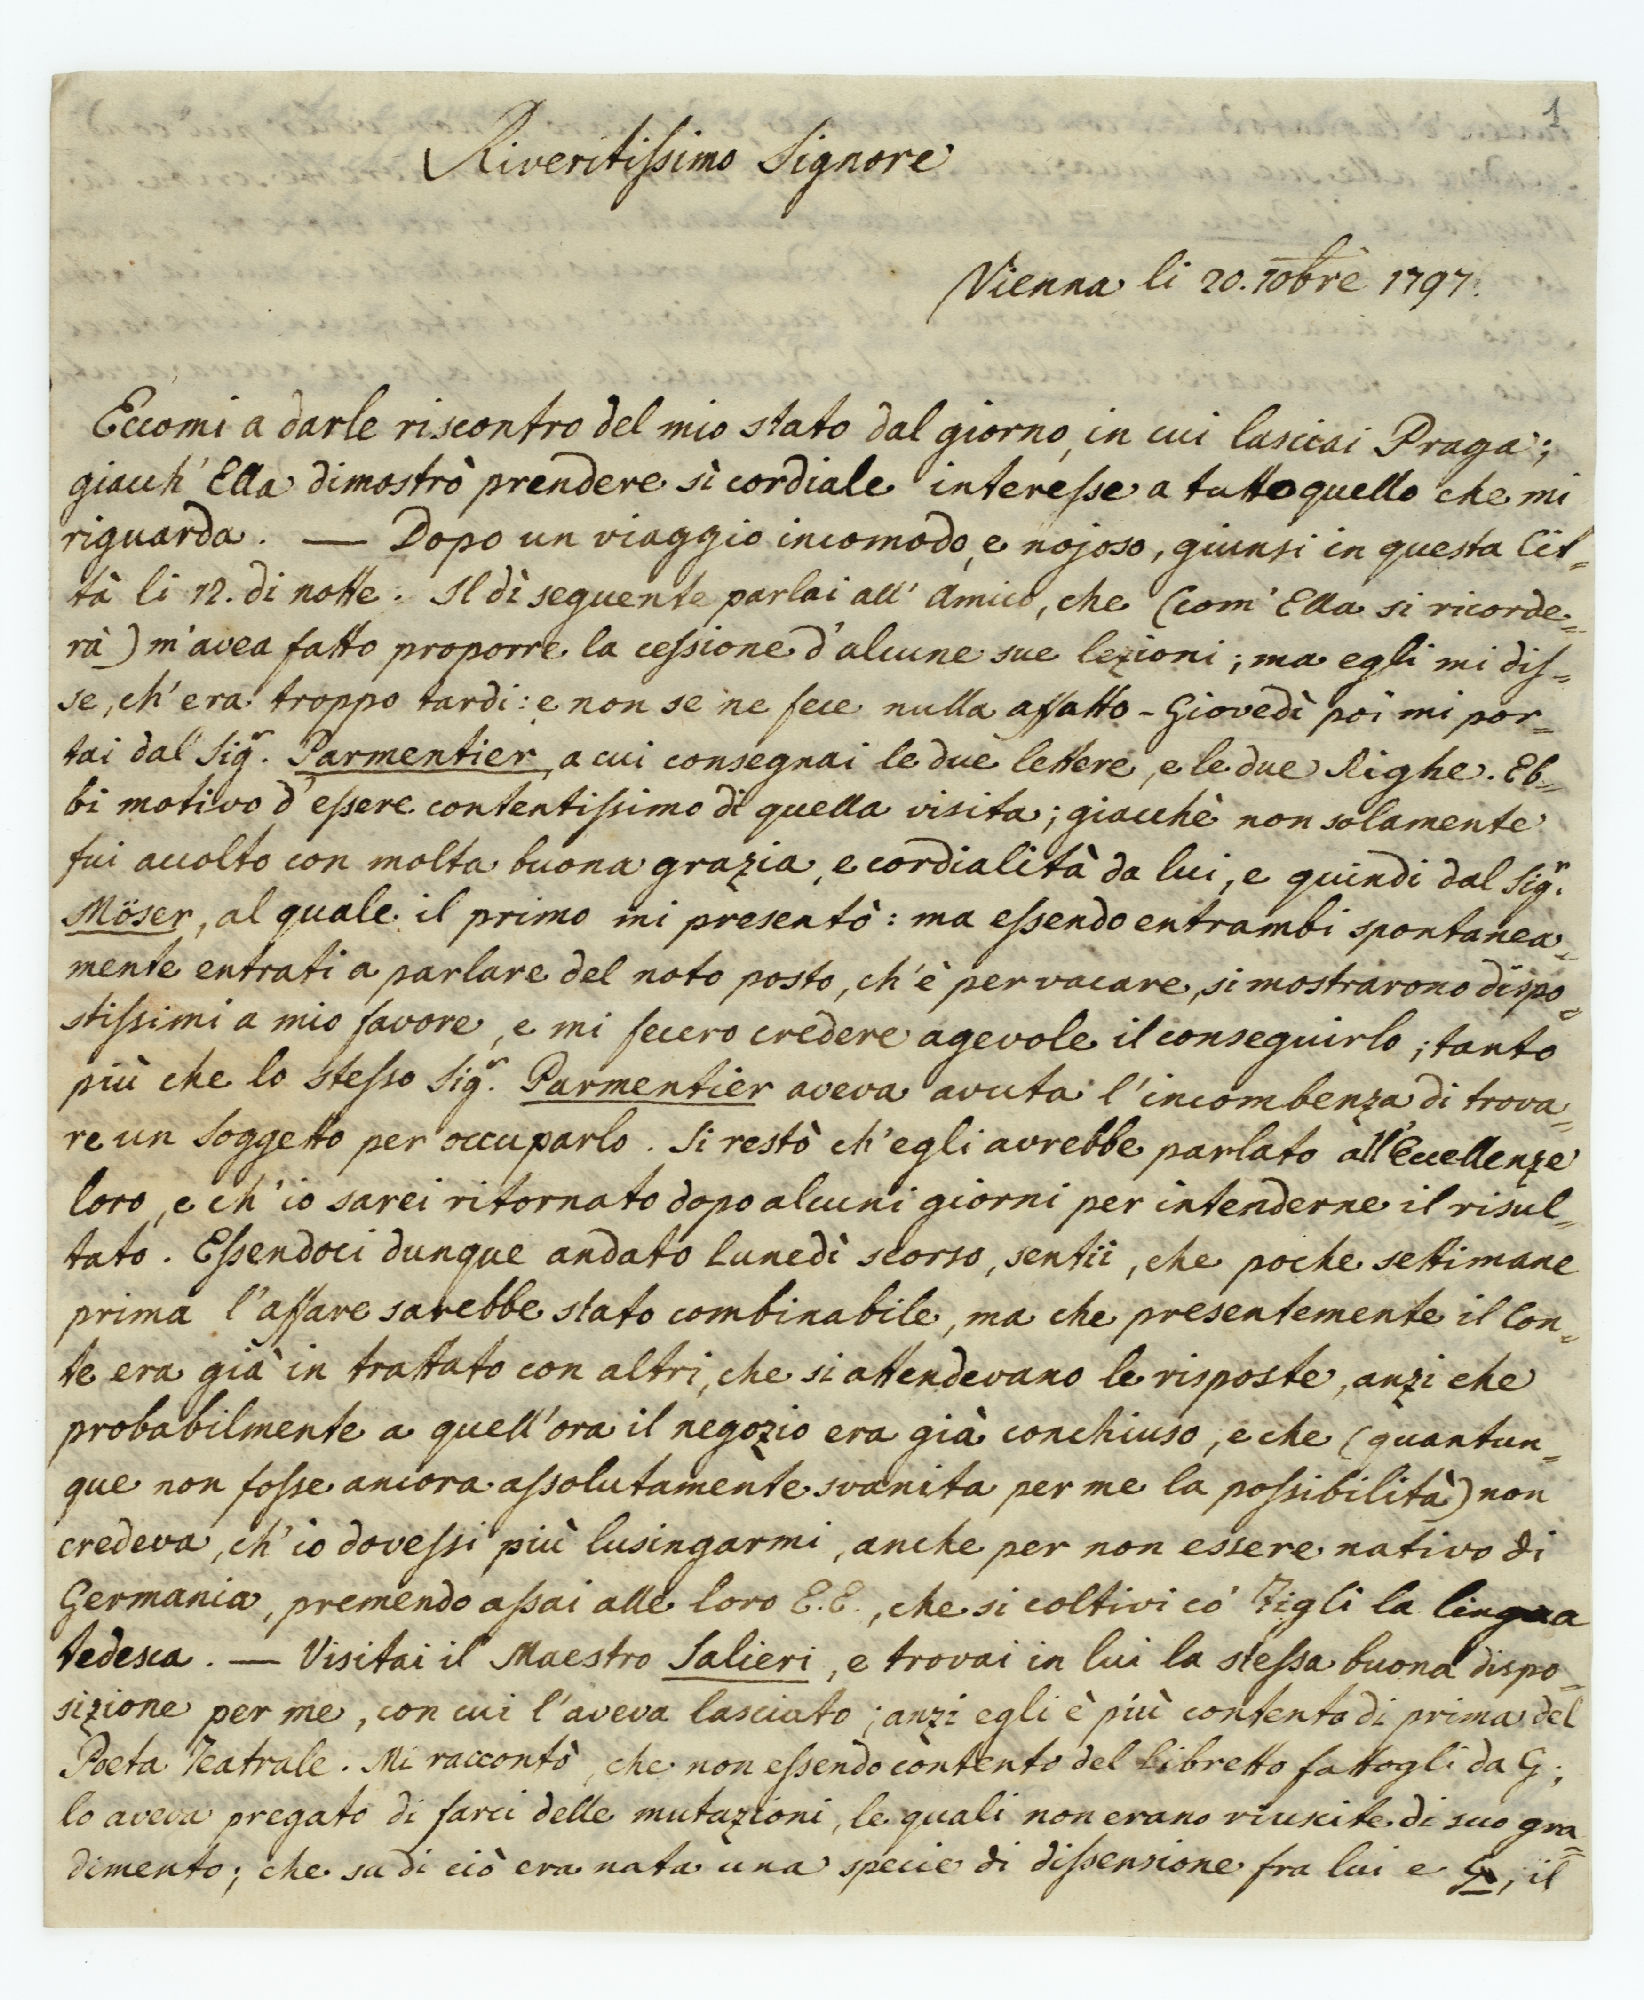 1
Riveritissimo Signore
Vienna li 20. 10bre 1797.
Eccomi a darle riscontro del mio stato dal giorno, in cui lasciai Praga;
giacch' Ella dimostrò prendere sì cordiale interesse a tutto quello che mi
riguarda. — Dopo un viaggio incomodo, e nojoso, giunsi in questa Cit=
tà li 12. di notte. Il dì seguente parlai all' Amico, che (com' Ella si ricorde=
rà) m'avea fatto proporre la cessione d'alcune sue lezioni; ma egli mi dis=
se, ch'era troppo tardi: e non se ne fece nulla affatto - Giovedì poi mi por=
tai dal Sigr. Parmentier, a cui consegnai le due lettere, e le due Righe. Eb=
bi motivo d'essere contentissimo di quella visita; giacchè non solamente
fui accolto con molta buona grazia, e cordialità da lui, e quindi dal Sigr.
Möser, al quale il primo mi presentò: ma essendo entrambi spontanea=
mente entrati a parlare del noto posto, ch'è per vacare, si mostrarono dispo=
stissimi a mio favore, e mi fecero credere agevole il conseguirlo; tanto
più che lo stesso Sigr. Parmentier aveva avuta l'incombenza di trova=
re un Soggetto per occuparlo. Si restò ch'egli avrebbe parlato all'Eccellenze
loro, e ch'io sarei ritornato dopo alcuni giorni per intenderne il risul=
tato. Essendoci dunque andato Lunedì scorso, sentii, che poche settimane
prima l'affare sarebbe stato combinabile, ma che presentemente il Con=
te era già in trattato con altri, che si attendevano le risposte, anzi che
probabilmente a quell'ora il negozio era già conchiuso, e che (quantun=
que non fosse ancora assolutamente svanita per me la possibilità) non
credeva, ch'io dovessi più lusingarmi, anche per non essere nativo di
Germania, premendo assai alle loro E.E., che si coltivi co' Figli la lingua
tedesca. — Visitai il Maestro Salieri, e trovai in lui la stessa buona dispo=
sizione per me, con cui l'aveva lasciato; anzi egli è più contento di prima del
Poeta Teatrale. Mi raccontò, che non essendo contento del Libretto fattogli da G;
lo aveva pregato di farci delle mutazioni, le quali non erano riuscite di suo gra=
dimento; che su di ciò era nata una specie di dissensione fra lui e G, il